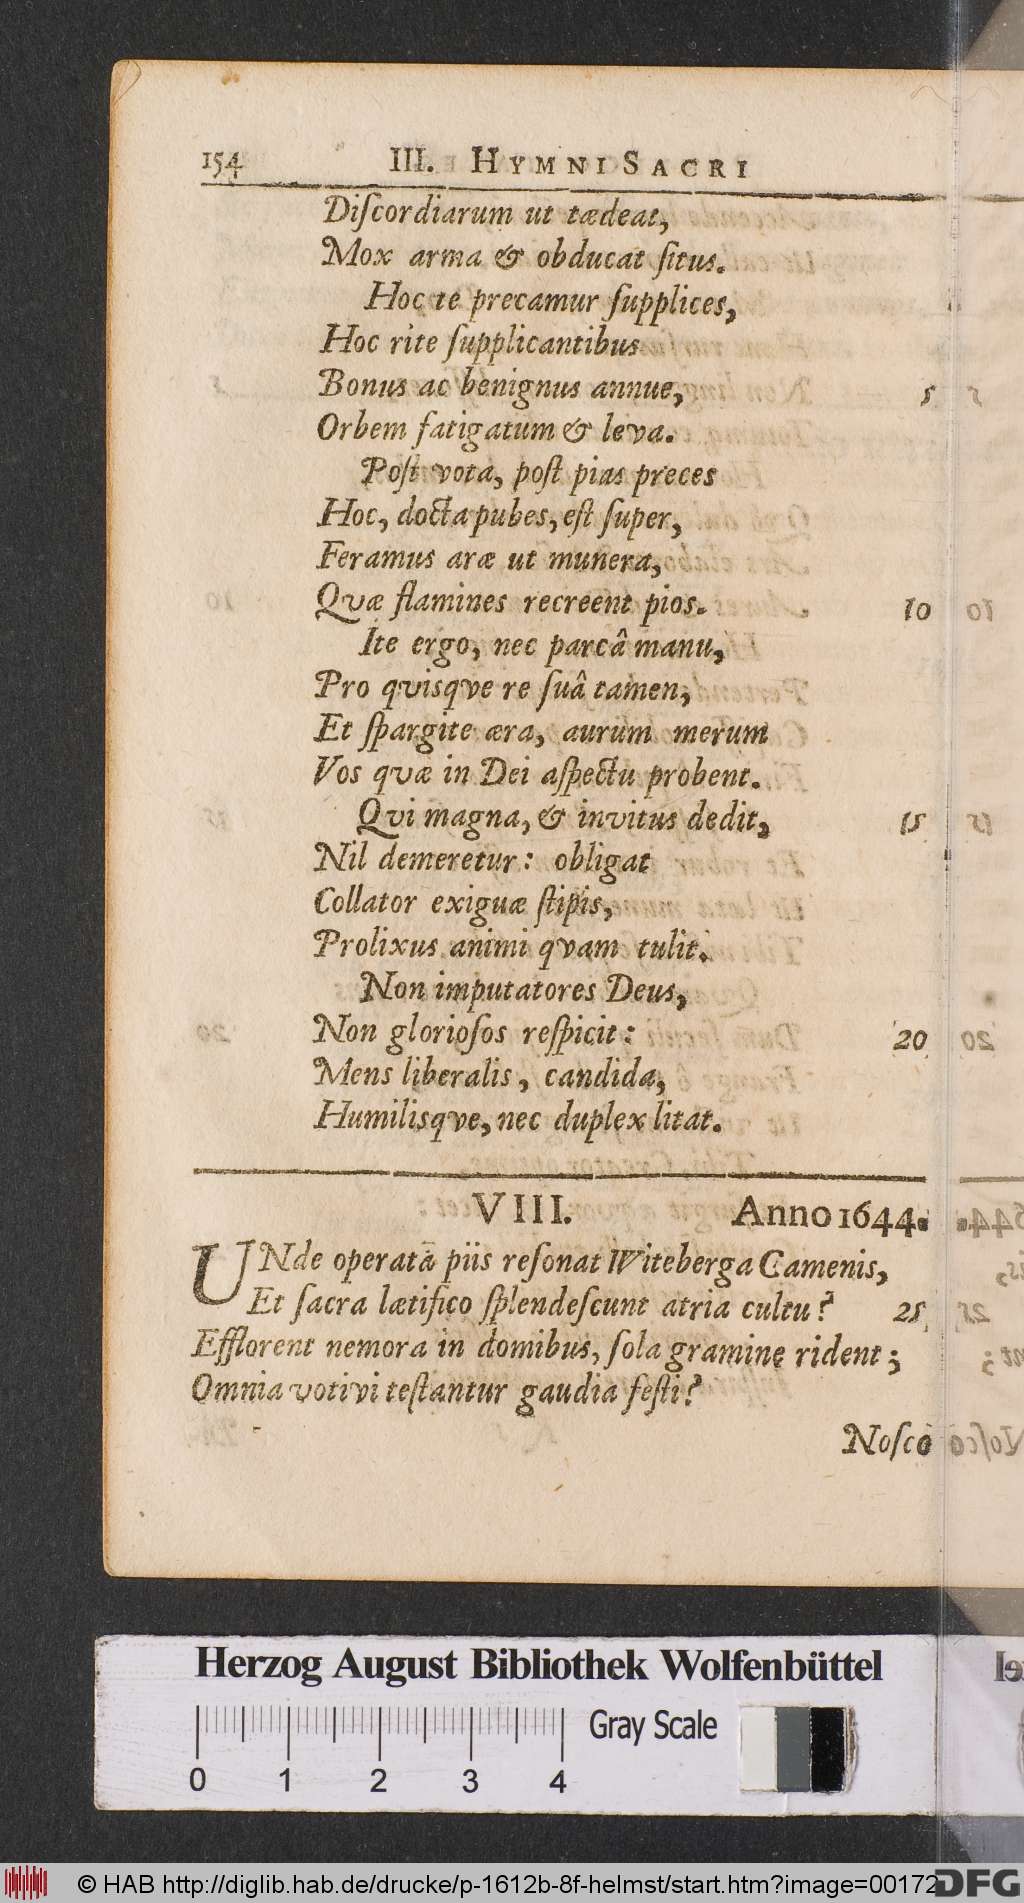 154 III. HYMNI SACRI
Diſcordiarum ut tædeat,
Mox arma & obducat ſitus.
Hoc te precamur ſupplices,
Hoc rite ſupplicantibus
Bonus ac benignus annue, 5
Orbem fatigatum & leva.
Poſt vota, poſt pias preces
Hoc, docta pubes, eſt ſuper,
Feramus aræ ut munera,
Quæ flamines recreent pios. 10
Ite ergo, nec parcâ manu,
Pro quisque re ſuâ tamen,
Et ſpargite æra, aurum merum
Vos quæ in Dei aſpectu probent.
Qui magna, & invitus dedit, 15
Nil demeretur: obligat
Collator exiguæ ſtipis,
Prolixus animi quam tulit.
Non imputatores Deus,
Non glorioſos reſpicit: 20
Mens liberalis, candida,
Humilisque, nec duplex litat.
VIII. Anno 1644.
UNde operata piis reſonat Witeberga Camenis,
Et ſacra lætifico ſplendeſcunt atria cultu? 25
Efflorent nemora in domibus, ſola gramine rident;
Omnia votivi teſtantur gaudia feſti?
Noſco
Herzog August Bibliothek Wolfenbüttel
Gray Scale
0 1 2 3 4
© HAB http://diglib.hab.de/drucke/p-1612b-8f-helmst/start.htm?image=00172
DFG